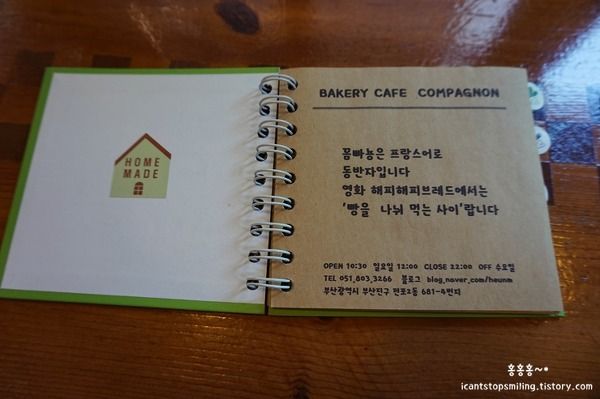 HOME
MADE
BAKERY CAFE COMPAGNON
꼼빠뇽은 프랑스어로
동반자입니다
영화 해피해피브레드에서는
'빵을 나눠 먹는 사이'랍니다
OPEN 10:30 일요일 12:00 CLOSE 22:00 OFF 수요일
TEL 051.803.3266 블로그 blog.naver.com/heunm
부산광역시 부산진구 전포2동 681-4번지
홍홍홍~•
icantstopsmiling.tistory.com